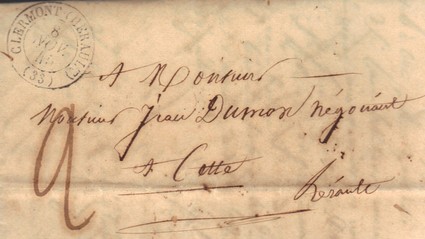 CLERMONT (HERAULT)
8
NOV.
(33)
A Monsieur
Monsieur Jean Dumon négociant
A Cette
hérault
2